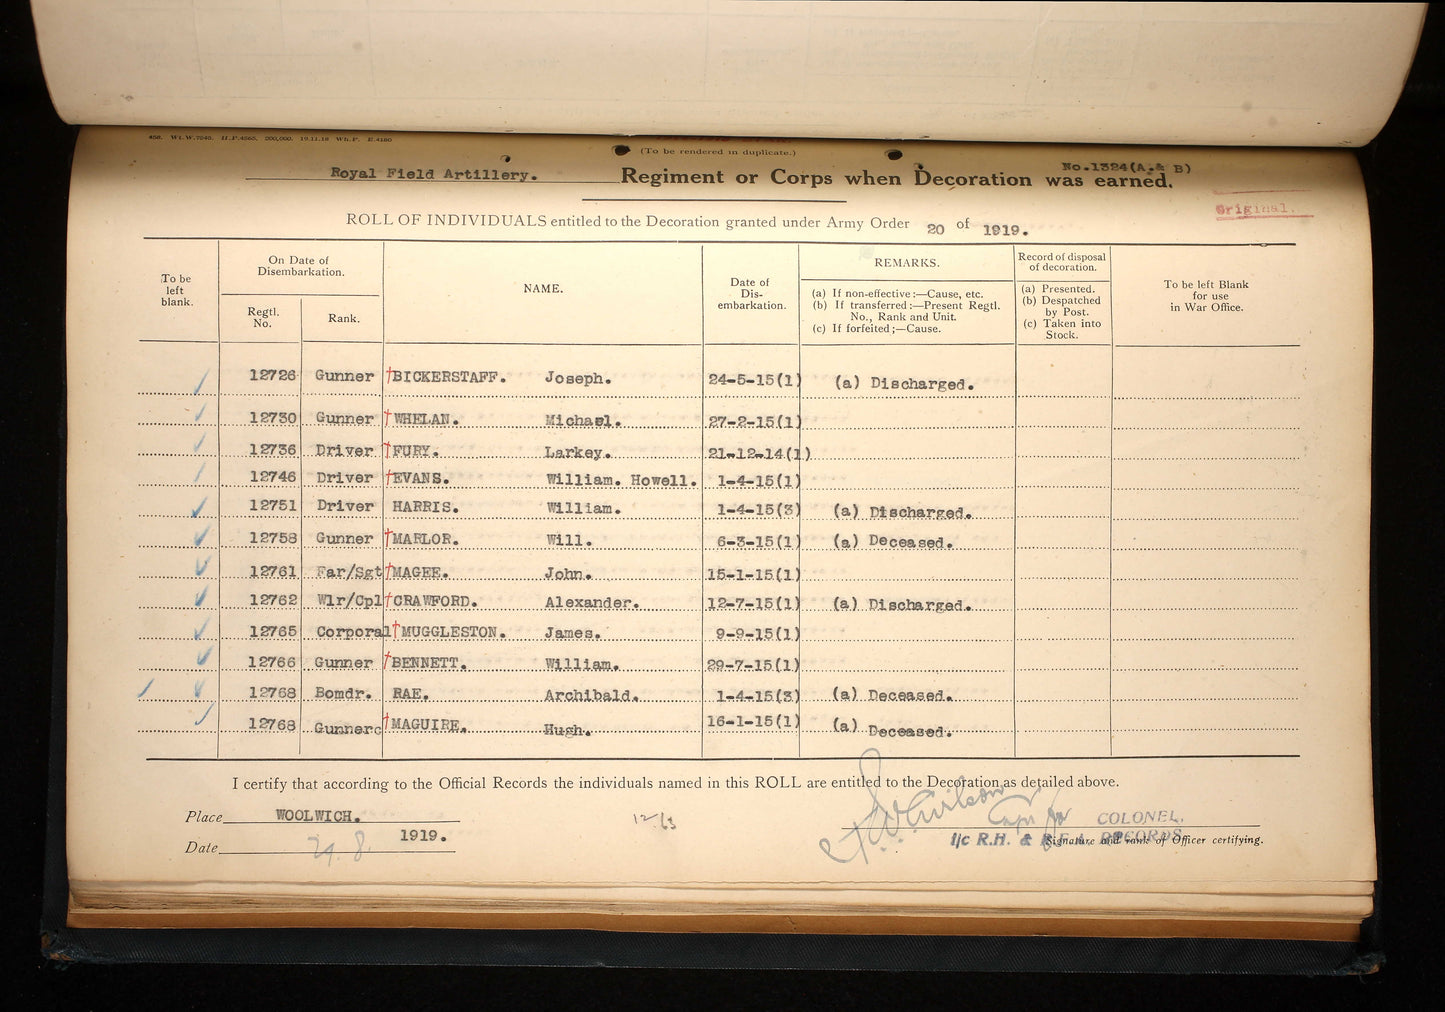 458. Wt.W.7245. H.P.4565. 200,000. 19.11.18 Wh.P. E.4180
(To be rendered in duplicate.)
No.1324(A.& B)
Royal Field Artillery. Regiment or Corps when Decoration was earned.
Original.
ROLL OF INDIVIDUALS entitled to the Decoration granted under Army Order 20 of 1919.
To be left blank.
On Date of Disembarkation.
Regtl. No.
Rank.
NAME.
Date of Dis-embarkation.
REMARKS.
(a) If non-effective:—Cause, etc.
(b) If transferred:—Present Regtl. No., Rank and Unit.
(c) If forfeited;—Cause.
Record of disposal of decoration.
(a) Presented.
(b) Despatched by Post.
(c) Taken into Stock.
To be left Blank for use in War Office.
12726 Gunner †BICKERSTAFF. Joseph. 24-5-15(1) (a) Discharged.
12730 Gunner †WHELAN. Michael. 27-2-15(1)
12736 Driver †FURY. Larkey. 21-12-14(1)
12746 Driver †EVANS. William. Howell. 1-4-15(1)
12751 Driver HARRIS. William. 1-4-15(3) (a) Discharged.
12758 Gunner †MARLOR. Will. 6-3-15(1) (a) Deceased.
12761 Far/Sgt †MAGEE. John. 15-1-15(1)
12762 Wlr/Cpl †CRAWFORD. Alexander. 12-7-15(1) (a) Discharged.
12765 Corporal †MUGGLESTON. James. 9-9-15(1)
12766 Gunner †BENNETT. William. 29-7-15(1)
12768 Bomdr. RAE. Archibald. 1-4-15(3) (a) Deceased.
12768 Gunner †MAGUIRE. Hugh. 16-1-15(1) (a) Deceased.
I certify that according to the Official Records the individuals named in this ROLL are entitled to the Decoration as detailed above.
Place WOOLWICH.
COLONEL.
Date 29. 8. 1919.
I/c R.H. & R.F.A. RECORDS
Signature and rank of Officer certifying.